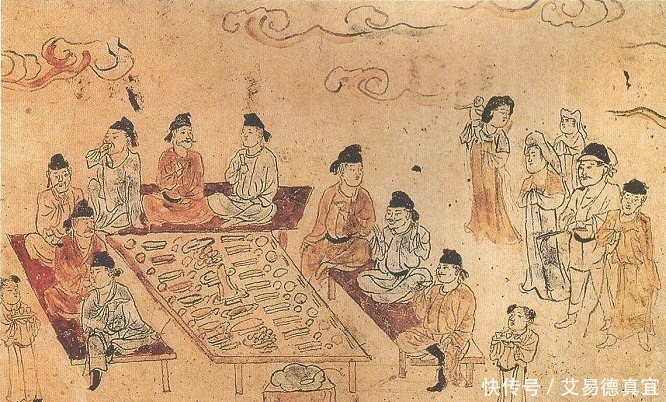 快传号 / 艾易德真宜